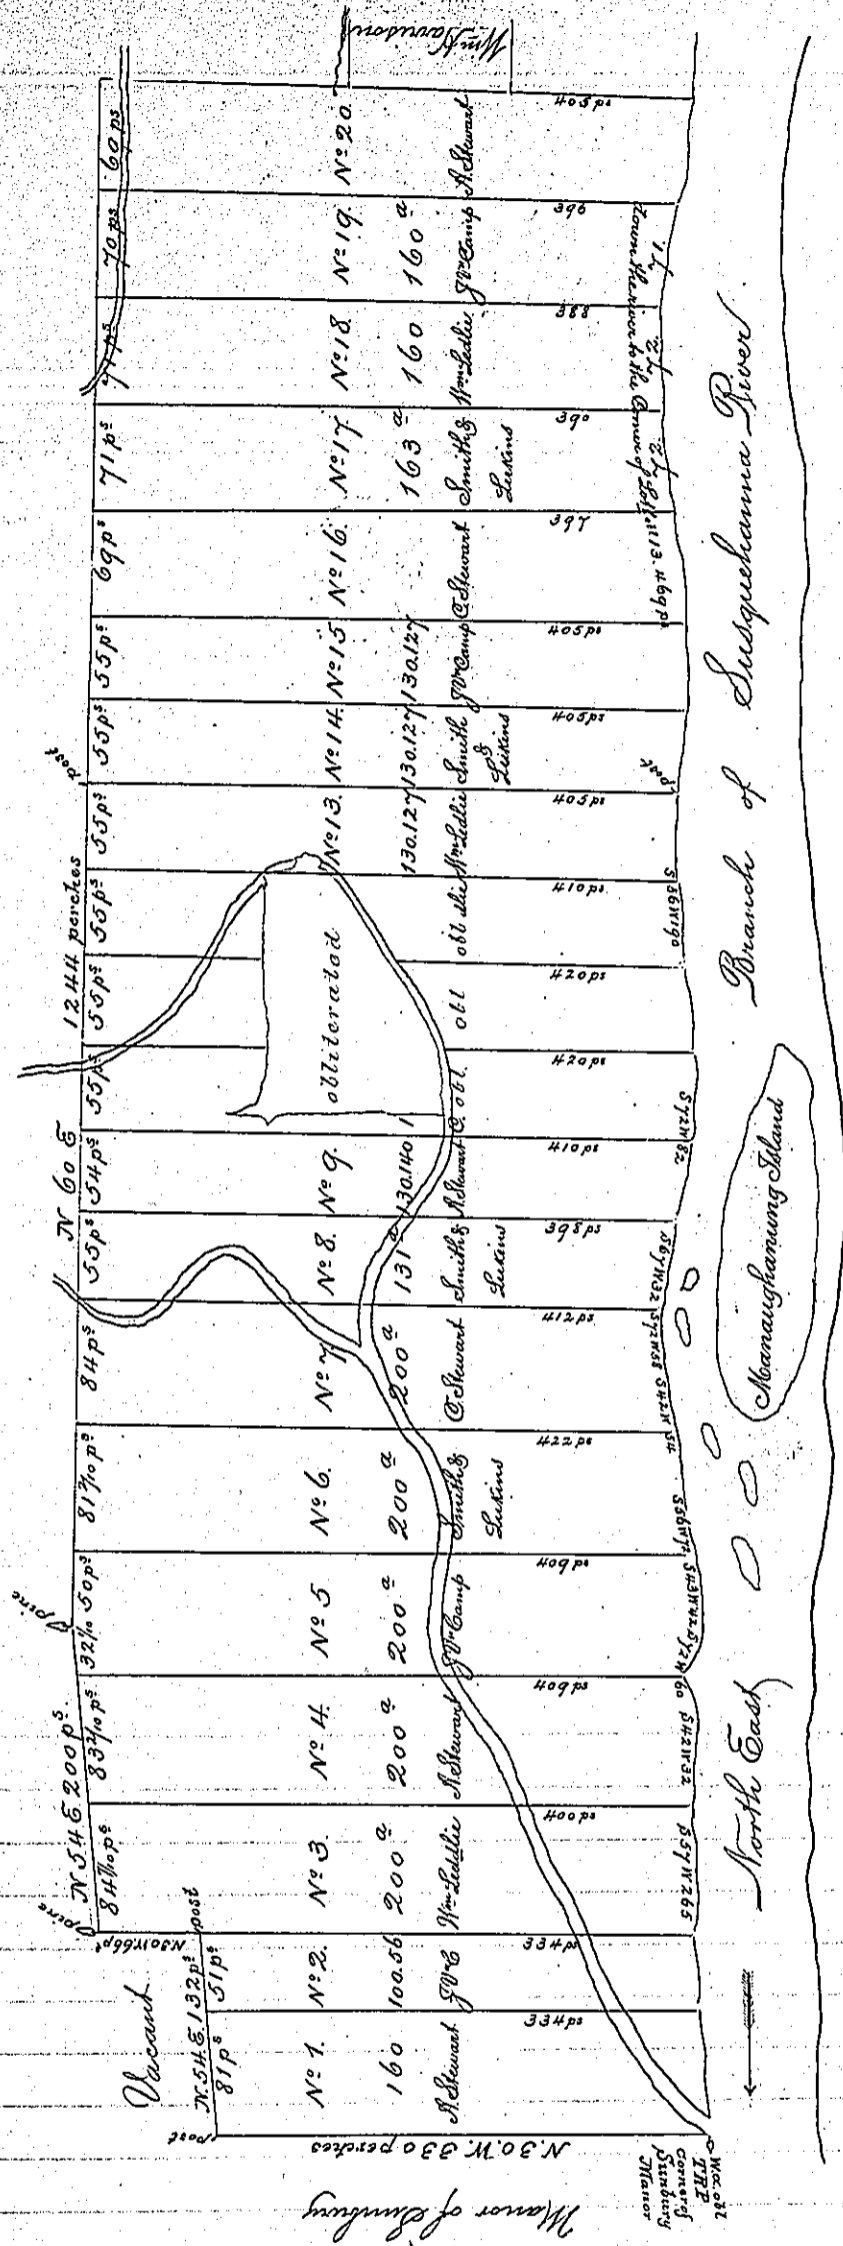 Manor of Sunbury
N. 30. W. 330 perches
post
Vacant
N. 54 E. 132 ps
post
81 ps
51 ps
N. 30 W. 66 ps
pine
N 54 E. 200 ps
84 4/10 ps
83 2/10 ps
32 4/10
pine
50 ps
81 7/10 ps
84 ps
N 60 E
1244 perches
55 ps
54 ps
55 ps
55 ps
55 ps
55 ps
post
55 ps
55 ps
69 ps
71 ps
71 ps
70 ps
60 ps
No. 1.
160
A. Stewart
334 ps
No. 2.
100.56
J McC
334 ps
No. 3.
200 a
Wm Leddlie
400 ps
No. 4.
200 a
A. Stewart
409 ps
No. 5
200 a
J McCamp
409 ps
No. 6.
200 a
Smith &
Lukins
422 ps
No. 7
200 a
C. Stewart
412 ps
No. 8.
131 a
Smith &
Lukins
398 ps
No. 9.
130.140
A. Stewart
410 ps
obliterated
1
C. obl.
420 ps
obl
420 ps
obl dlie
410 ps
No. 13.
130.127
Wm Ledlie
405 ps
No. 14.
130.127
Smith
&
Lukins
405 ps
No. 15
130.127
405 ps
No. 16.
C. Stewart
397
No. 17
163 a
Smith &
Lukins
390
No. 18.
160
Wm Ledlie
388
No. 19.
160 a
396
No. 20.
A. Stewart
405 ps
Wm Harrison
corner of
Sunbury
Manor
S 57 W 265
S 42 W 32
S 72 W 60
S 56 W 72
S 42 W 54
S 72 W 58
S 67 W 32
S 72 W 82
S 56 W 190
post
72.
72.
71.
down the river to the Corner of
469 ps
North East
Branch of Susquehanna River
Manaughanung Island